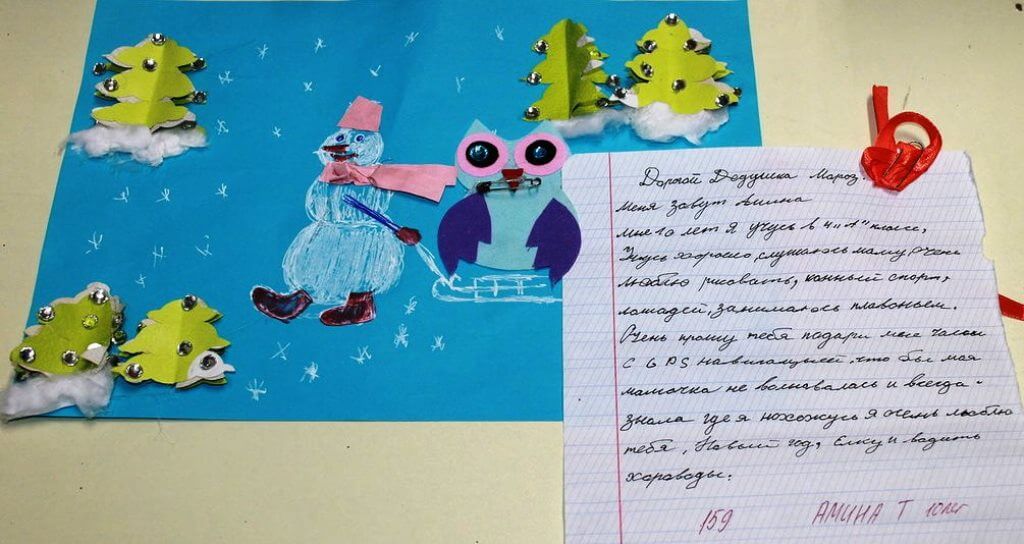 Дорогой Дедушка Мороз.
меня зовут Амина
мне 10 лет Я учусь в 4 "А" классе,
Учусь хорошо, слушаюсь маму, очень
люблю рисовать, конный спорт,
лошадей, занимаюсь плаваньем.
Очень прошу тебя подари мне часы
с GPS навигацией. что бы моя
мамочка не волновалась и всегда
знала где я нохожусь Я очень люблю
тебя, Новый год, Ёлку и водить
хороводы.
159 АМИНА Т 10лет